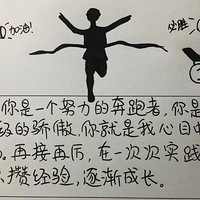 加油!
必胜
你是一个努力的奔跑者,你是
的骄傲,你就是我心目中
。再接再厉,在一次次实践
攒经验,逐渐成长。